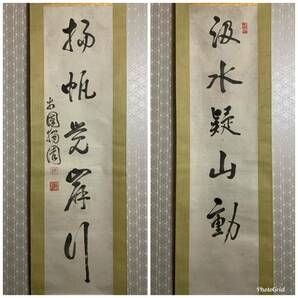 汲水疑山動
揚帆覚岸行
PhotoGrid